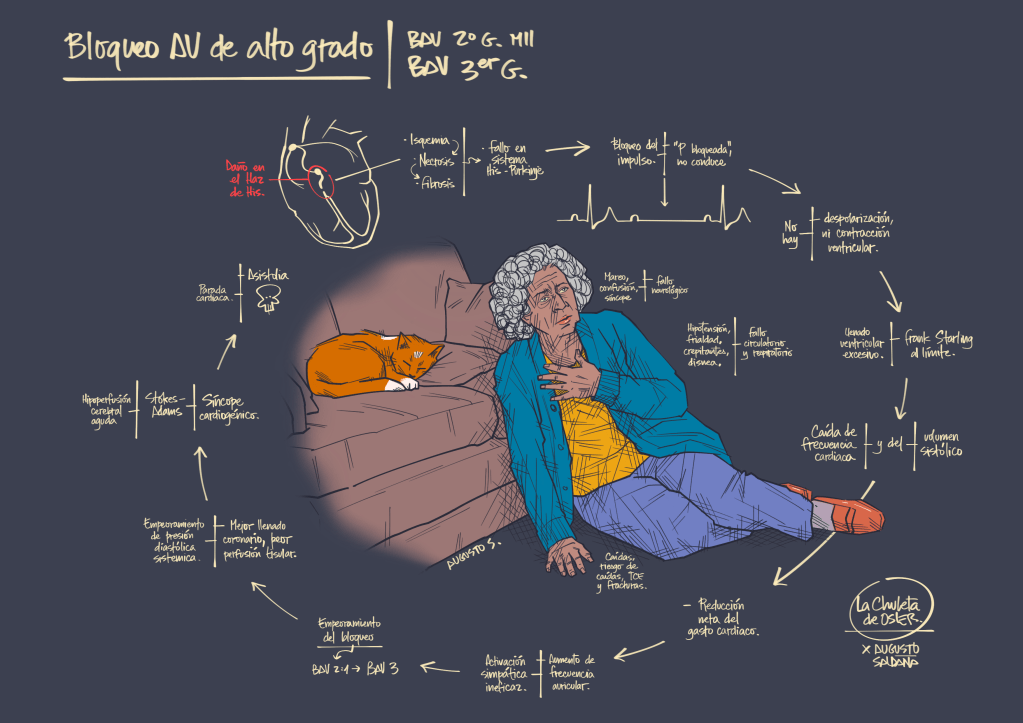 Bloqueo AV de alto grado
BAV 2º G. MII
BAV 3er G.
Daño en
el Haz
de His.
· Isquemia
· Necrosis
· Fibrosis
· Fallo en
sistema
His - Purkinje
Bloqueo del
impulso.
"P bloqueada",
no conduce
No
hay
despolarización,
ni contracción
ventricular.
Llenado
ventricular
excesivo.
Frank Starling
al límite.
Caída de
frecuencia
cardiaca
y del
volumen
sistólico
- Reducción
neta del
gasto cardiaco.
Aumento de
frecuencia
auricular.
Activación
simpática
ineficaz.
Empeoramiento
del bloqueo
BAV 2:1 → BAV 3
Mejor llenado
coronario, peor
perfusión tisular.
Empeoramiento
de presión
diastólica
sistemica.
Síncope
cardiogénico.
Stokes-
Adams
Hipoperfusión
cerebral
aguda
Asistolia
Parada
cardiaca.
Mareo,
confusión,
síncope
fallo
neurológico
Hipotensión,
frialdad,
crepitantes,
disnea.
fallo
circulatorio
y respiratorio
Caídas,
riesgo de
caídas, TCE
y fracturas.
AUGUSTO S.
La Chuleta
de OSLER.
X AUGUSTO
SALDAÑA